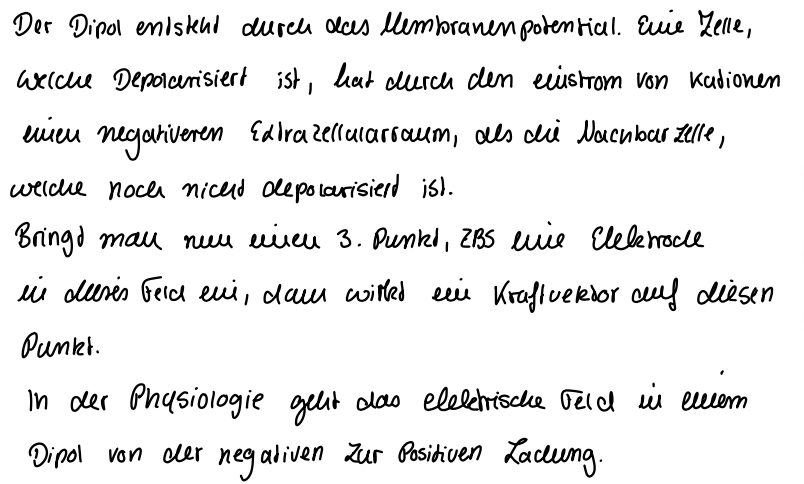 Der Dipol entsteht durch das Membranenpotential. Eine Zelle,
welche Depolarisiert ist, hat durch den einstrom von Kationen
einen negativeren Extrazellularraum, als die Nachbarzelle,
welche noch nicht depolarisiert ist.
Bringt man nun einen 3. Punkt, ZBS eine Elektrode
in dieses Feld ein, dann wirkt ein Kraftvektor auf diesen
Punkt.
In der Physiologie geht das elektrische Feld in einem
Dipol von der negativen zur Positiven Ladung.